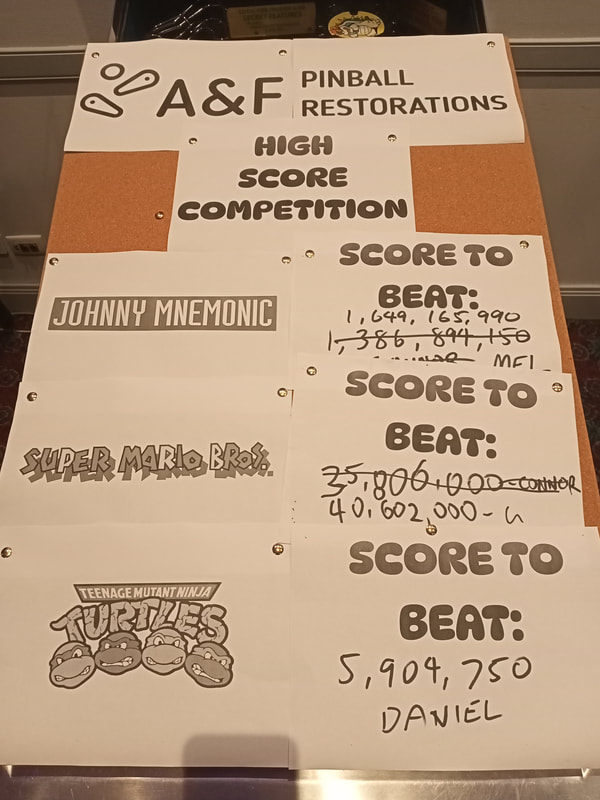 A&F PINBALL
RESTORATIONS
HIGH
SCORE
COMPETITION
JOHNNY MNEMONIC
SCORE TO
BEAT:
1,649,165,990
1,386,894,150
CONNOR MEL
SUPER MARIO BROS.
SCORE TO
BEAT:
35,806,000-CONNOR
40,602,000-
TEENAGE MUTANT NINJA
TURTLES
SCORE TO
BEAT:
5,904,750
DANIEL